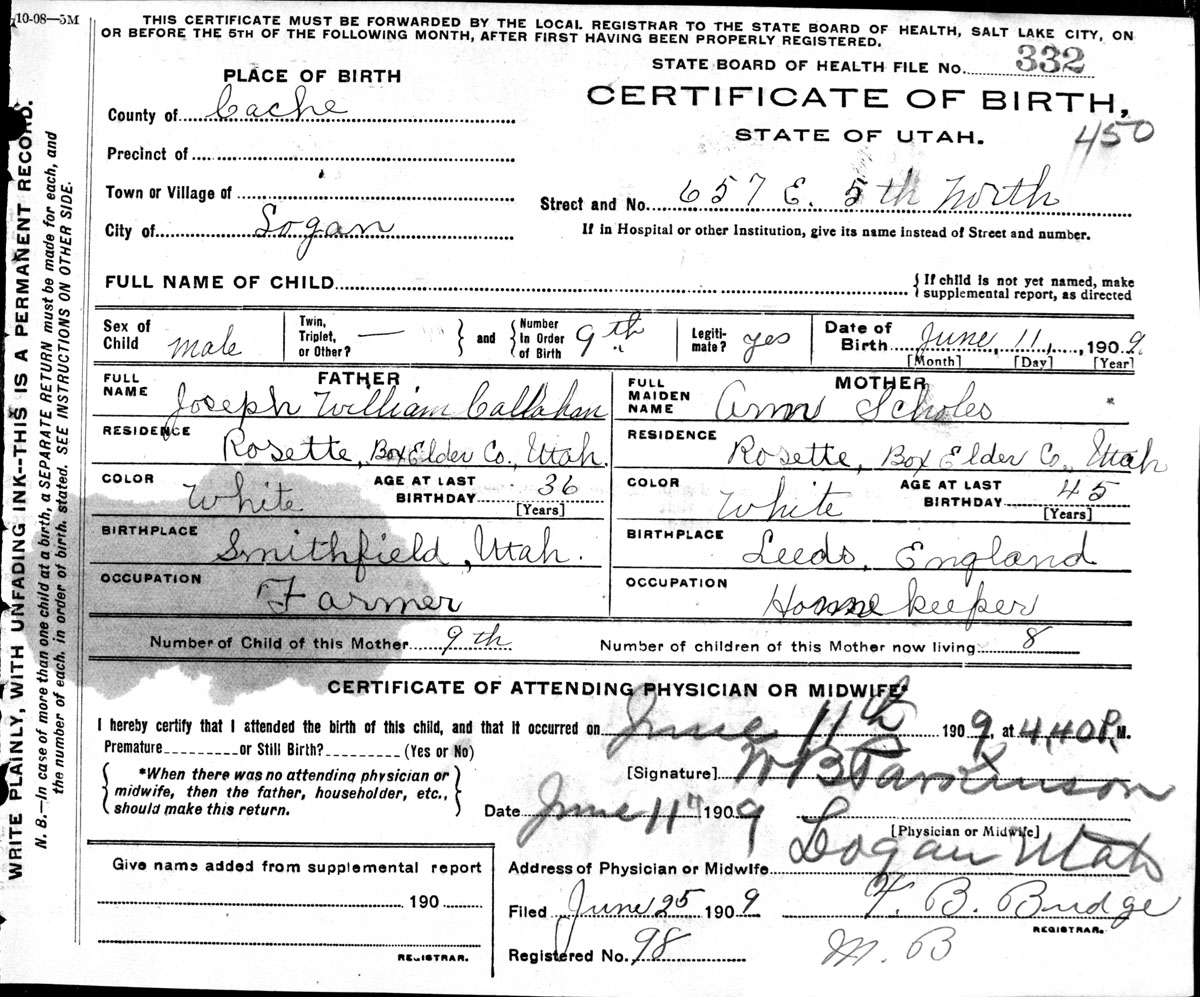 10-08—5M
THIS CERTIFICATE MUST BE FORWARDED BY THE LOCAL REGISTRAR TO THE STATE BOARD OF HEALTH, SALT LAKE CITY, ON
OR BEFORE THE 5TH OF THE FOLLOWING MONTH, AFTER FIRST HAVING BEEN PROPERLY REGISTERED.
STATE BOARD OF HEALTH FILE No. 332
PLACE OF BIRTH
CERTIFICATE OF BIRTH,
County of Cache
STATE OF UTAH.
450
Precinct of
Town or Village of
Street and No. 657 E. 5th North
City of Logan
If in Hospital or other Institution, give its name instead of Street and number.
FULL NAME OF CHILD
{ If child is not yet named, make supplemental report, as directed
Sex of Child male Twin, Triplet, or Other? — } and { Number In Order of Birth 9th Legitimate? yes Date of Birth June, 11, 1909
[Month] [Day] [Year]
FATHER
MOTHER
FULL NAME Joseph William Callahan
FULL MAIDEN NAME Ann Scholes
RESIDENCE Rosette, Box Elder Co., Utah.
RESIDENCE Rosette, Box Elder Co., Utah
COLOR White AGE AT LAST BIRTHDAY 36 [Years]
COLOR White AGE AT LAST BIRTHDAY 45 [Years]
BIRTHPLACE Smithfield, Utah.
BIRTHPLACE Leeds, England
OCCUPATION Farmer
OCCUPATION Home keeper
Number of Child of this Mother 9th
Number of children of this Mother now living 8
CERTIFICATE OF ATTENDING PHYSICIAN OR MIDWIFE*
I hereby certify that I attended the birth of this child, and that it occurred on June 11th 1909 at 4,40 P. M.
Premature or Still Birth? (Yes or No)
{ *When there was no attending physician or midwife, then the father, householder, etc., should make this return. }
[Signature] W B Parkinson
Date June 11" 1909
[Physician or Midwife]
Address of Physician or Midwife Logan Utah
Give name added from supplemental report
190
REGISTRAR.
Filed June 25 1909 B. Budge
REGISTRAR.
Registered No. 98
WRITE PLAINLY, WITH UNFADING INK--THIS IS A PERMANENT RECORD.
N. B.—In case of more than one child at a birth, a SEPARATE RETURN must be made for each, and
the number of each, in order of birth, stated. SEE INSTRUCTIONS ON OTHER SIDE.